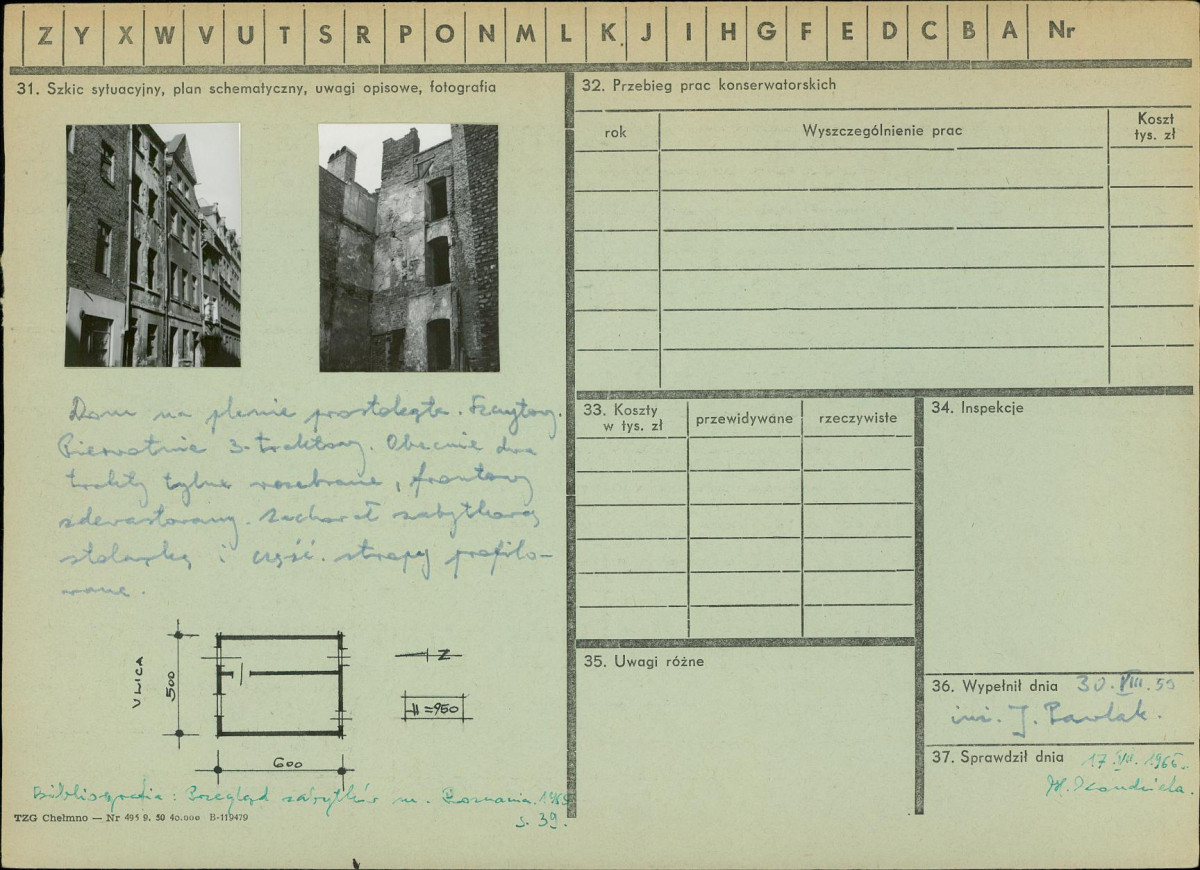 Z Y X W V U T S R P O N M L K J I H G F E D C B A Nr
31. Szkic sytuacyjny, plan schematyczny, uwagi opisowe, fotografia
Dom na planie prostokąta. Szczytowy.
Pierwotnie 3-traktowy. Obecnie dwa
trakty tylne rozebrane, frontowy
zdewastowany. Zachował zabytkową
stolarkę i część. stropy profilo-
wane.
ULICA
500
600
Z
H=950
Bibliografia: Przegląd zabytków m. Poznania. 1965
s. 39.
TZG Chełmno — Nr 495 9. 50 40.000 B-119479
32. Przebieg prac konserwatorskich
rok
Wyszczególnienie prac
Koszt
tys. zł
33. Koszty
w tys. zł
przewidywane
rzeczywiste
34. Inspekcje
35. Uwagi różne
36. Wypełnił dnia 30.VIII.59
inż. J. Pawlak.
37. Sprawdził dnia 17.VII.1965.
H. Kondziela.